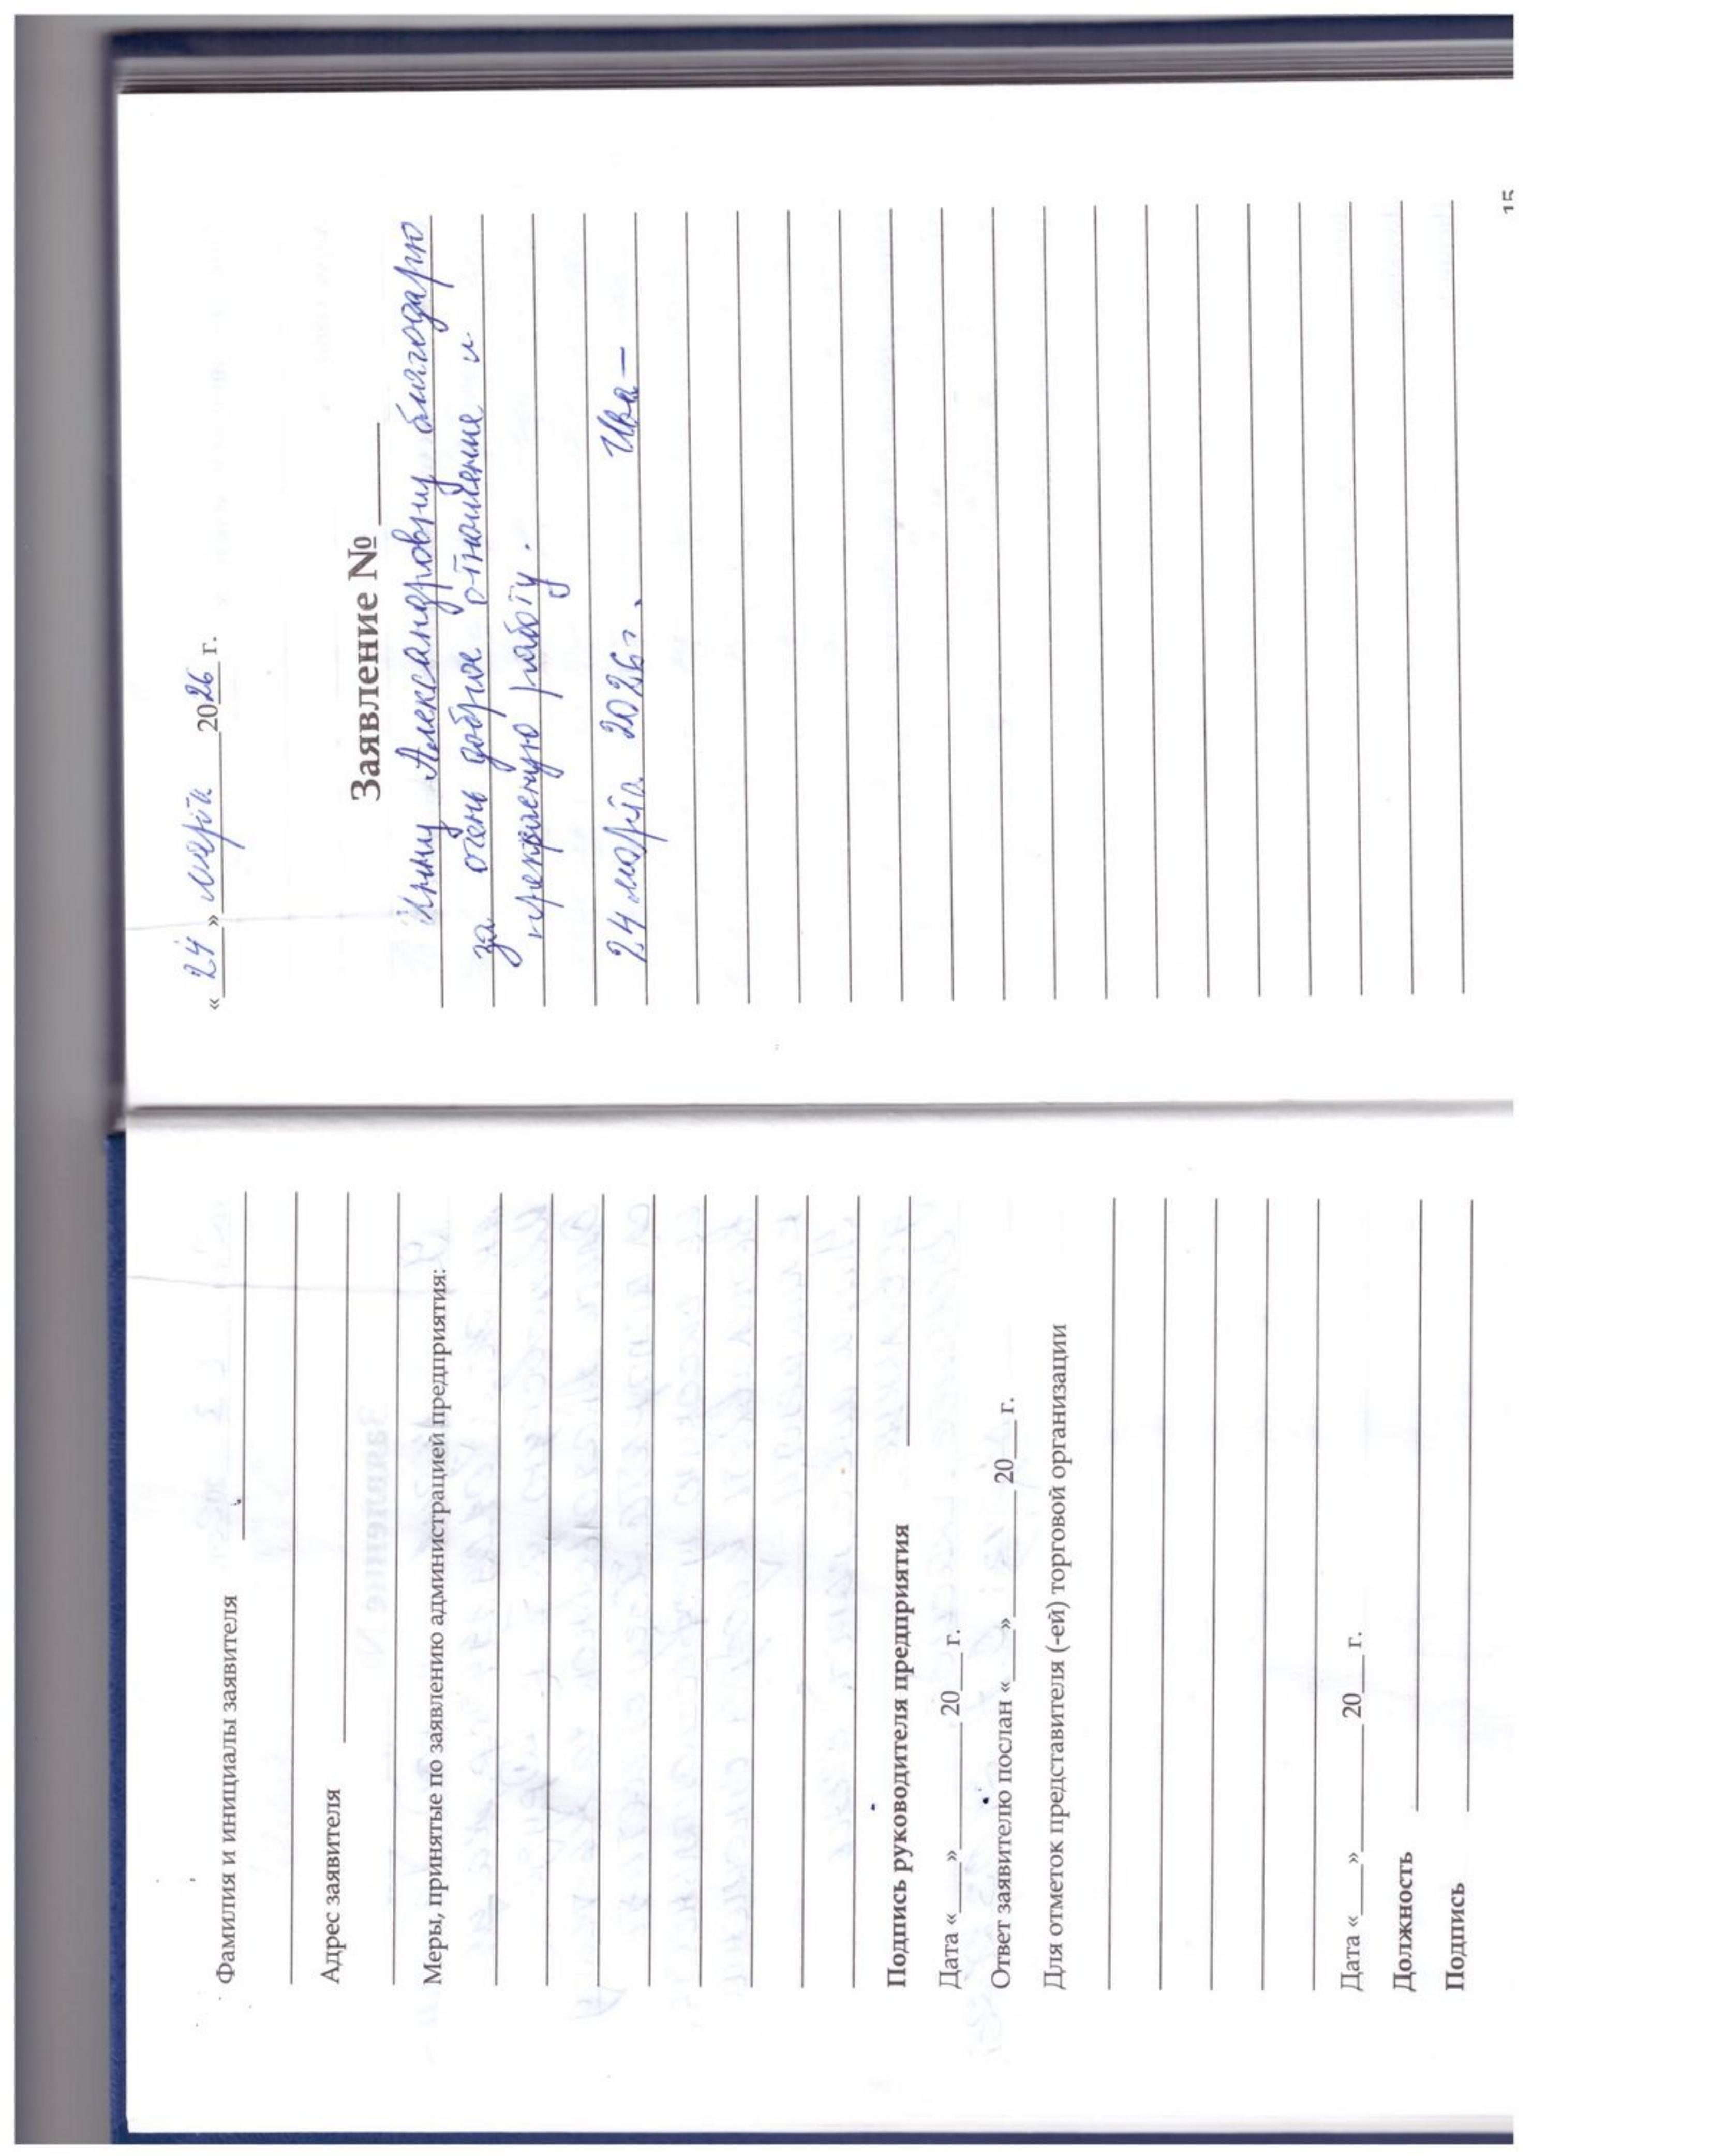 Фамилия и инициалы заявителя
Адрес заявителя
Меры, принятые по заявлению администрацией предприятия:
Подпись руководителя предприятия
Дата «___»________ 20___ г.
Ответ заявителю послан «___»________ 20___ г.
Для отметок представителя (-ей) торговой организации
Дата «___»________ 20___ г.
Должность
Подпись
« 24 » марта 2026 г.
Заявление № ____
Александровну благодарю
за очень доброе отношение и
прекрасную работу.
24 марта 2026 г.
15